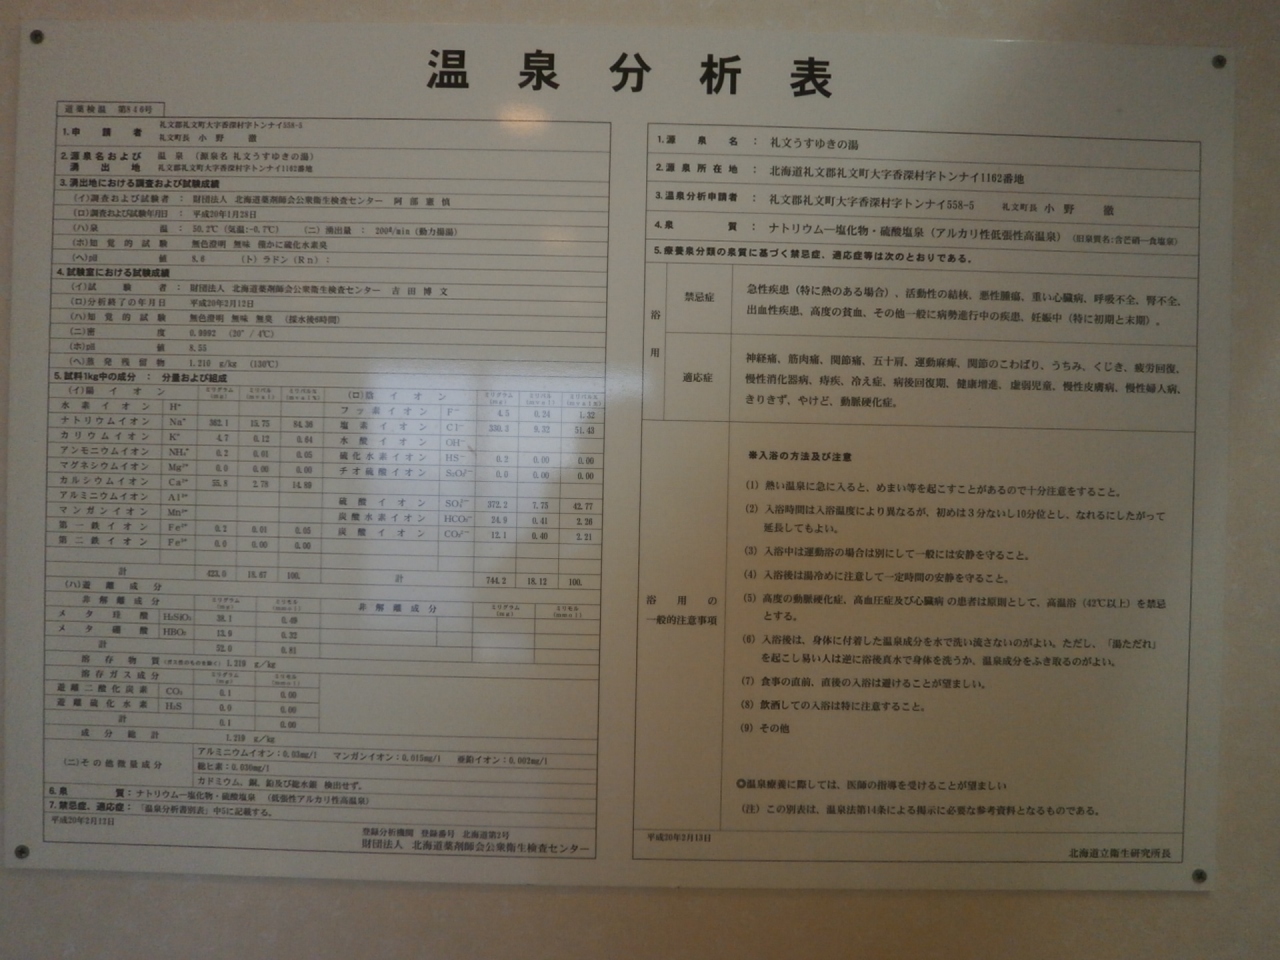 温泉分析表
道薬検温 第840号
1.申請者 礼文郡礼文町大字香深村字トンナイ558-5
礼文町長 小野 徹
2.源泉名および 温泉 (源泉名 礼文うすゆきの湯)
湧出地 礼文郡礼文町大字香深村字トンナイ1162番地
3.湧出地における調査および試験成績
(イ)調査および試験者 : 財団法人 北海道薬剤師会公衆衛生検査センター 阿部
(ロ)調査および試験年月日 : 平成20年1月28日
(ハ)泉温 : 50.2℃ (気温:-0.7℃) (ニ)湧出量 : 200ℓ/min (動力揚湯)
(ホ)知覚的試験 無色澄明 無味 微かに硫化水素臭
(ヘ)pH値 8.6 (ト)ラドン(Rn) :
4.試験室における試験成績
(イ)試験者 : 財団法人 北海道薬剤師会公衆衛生検査センター 吉田博文
(ロ)分析終了の年月日 平成20年2月12日
(ハ)知覚的試験 無色澄明 無味 無臭 (採水後6時間)
(ニ)密度 0.9992 (20°/4℃)
(ホ)pH値 8.55
(ヘ)蒸発残留物 1.210 g/kg (130℃)
5.試料1kg中の成分 : 分量および組成
(イ)陽イオン ミリグラム(mg) ミリバル(mval) ミリバル%(mval%)
水素イオン H⁺
ナトリウムイオン Na⁺ 362.1 15.75 84.36
カリウムイオン K⁺ 4.7 0.12 0.64
アンモニウムイオン NH₄⁺ 0.2 0.01 0.05
マグネシウムイオン Mg²⁺ 0.0 0.00 0.00
カルシウムイオン Ca²⁺ 55.8 2.78 14.89
アルミニウムイオン Al³⁺
マンガンイオン Mn²⁺
第一鉄イオン Fe²⁺ 0.2 0.01 0.05
第二鉄イオン Fe³⁺ 0.0 0.00 0.00
計 423.0 18.67 100.
(ロ)陰イオン ミリグラム(mg) ミリバル(mval) ミリバル%(mval%)
フッ素イオン F⁻ 4.5 0.24 1.32
塩素イオン Cl⁻ 330.3 9.32 51.43
水酸イオン OH⁻
硫化水素イオン HS⁻ 0.2 0.00 0.00
チオ硫酸イオン S₂O₃²⁻ 0.0 0.00 0.00
硫酸イオン SO₄²⁻ 372.2 7.75 42.77
炭酸水素イオン HCO₃⁻ 24.9 0.41 2.26
炭酸イオン CO₃²⁻ 12.1 0.40 2.21
計 744.2 18.12 100.
(ハ)遊離成分
非解離成分 ミリグラム(mg) ミリモル(mmol) 非解離成分 ミリグラム(mg) ミリモル(mmol)
メタ珪酸 H₂SiO₃ 38.1 0.49
メタ硼酸 HBO₂ 13.9 0.32
計 52.0 0.81
溶存物質(ガス性のものを除く) 1.219 g/kg
溶存ガス成分 ミリグラム(mg) ミリモル(mmol)
遊離二酸化炭素 CO₂ 0.1 0.00
遊離硫化水素 H₂S 0.0 0.00
計 0.1 0.00
成分総計 1.219 g/kg
(ニ)その他微量成分 アルミニウムイオン:0.03mg/l マンガンイオン:0.015mg/l 亜鉛イオン:0.002mg/l
総ヒ素:0.030mg/l
カドミウム、銅、鉛及び総水銀 検出せず。
6.泉質:ナトリウムー塩化物・硫酸塩泉 (低張性アルカリ性高温泉)
7.禁忌症、適応症:「温泉分析書別表」中5に記載する。
平成20年2月13日
登録分析機関 登録番号 北海道第2号
財団法人 北海道薬剤師会公衆衛生検査センター
1.源泉名 : 礼文うすゆきの湯
2.源泉所在地 : 北海道礼文郡礼文町大字香深村字トンナイ1162番地
3.温泉分析申請者 : 礼文郡礼文町大字香深村字トンナイ558-5 礼文町長 小野 徹
4.泉質 : ナトリウムー塩化物・硫酸塩泉(アルカリ性低張性高温泉) (旧泉質名:含芒硝ー食塩泉)
5.療養泉分類の泉質に基づく禁忌症、適応症等は次のとおりである。
浴用
禁忌症
急性疾患(特に熱のある場合)、活動性の結核、悪性腫瘍、重い心臓病、呼吸不全、腎不全、
出血性疾患、高度の貧血、その他一般に病勢進行中の疾患、妊娠中(特に初期と末期)。
適応症
神経痛、筋肉痛、関節痛、五十肩、運動麻痺、関節のこわばり、うちみ、くじき、疲労回復、
慢性消化器病、痔疾、冷え症、病後回復期、健康増進、虚弱児童、慢性皮膚病、慢性婦人病、
きりきず、やけど、動脈硬化症。
浴用の
一般的注意事項
※入浴の方法及び注意
(1) 熱い温泉に急に入ると、めまい等を起こすことがあるので十分注意をすること。
(2) 入浴時間は入浴温度により異なるが、初めは3分ないし10分位とし、なれるにしたがって
延長してもよい。
(3) 入浴中は運動浴の場合は別にして一般には安静を守ること。
(4) 入浴後は湯冷めに注意して一定時間の安静を守ること。
(5) 高度の動脈硬化症、高血圧症及び心臓病の患者は原則として、高温浴(42℃以上)を禁忌
とする。
(6) 入浴後は、身体に付着した温泉成分を水で洗い流さないのがよい。ただし、「湯ただれ」
を起こし易い人は逆に浴後真水で身体を洗うか、温泉成分をふき取るのがよい。
(7) 食事の直前、直後の入浴は避けることが望ましい。
(8) 飲酒しての入浴は特に注意すること。
(9) その他
◎温泉療養に際しては、医師の指導を受けることが望ましい
(注) この別表は、温泉法第14条による掲示に必要な参考資料となるものである。
平成20年2月13日
北海道立衛生研究所長